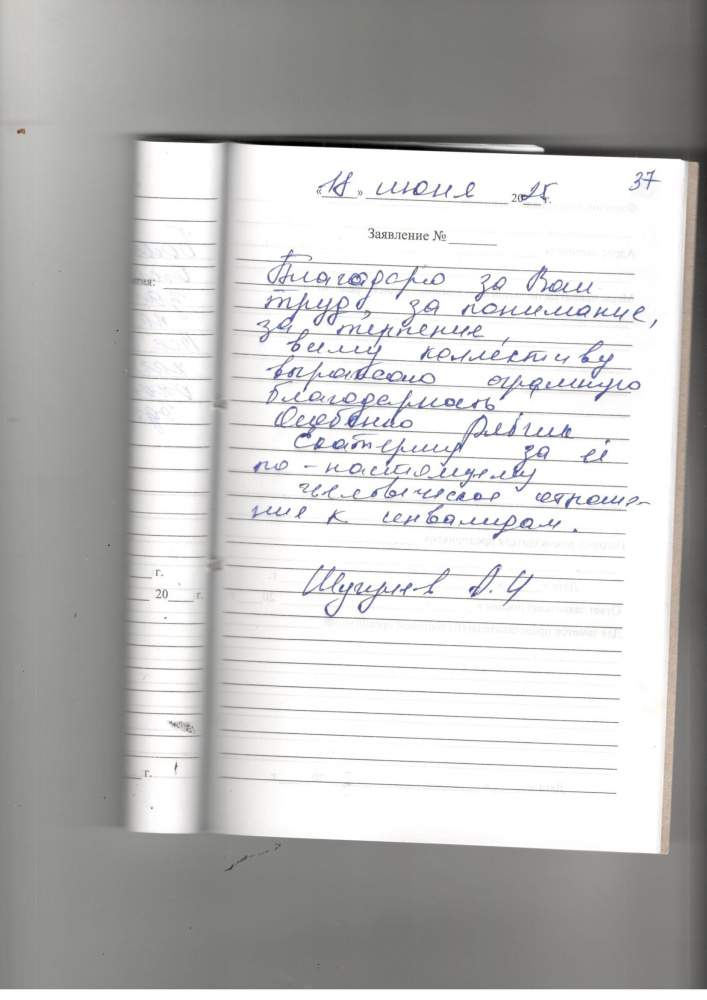 37
«18» июня 2025 г.
Заявление №
Благодарю за Ваш
труд, за понимание,
за терпение,
всему коллективу
выражаю огромную
благодарность
Особенно
Екатерину за её
по-настоящему
человеческое отноше-
ние к инвалидам.
Д. И
тия:
г.
20 г.
г.